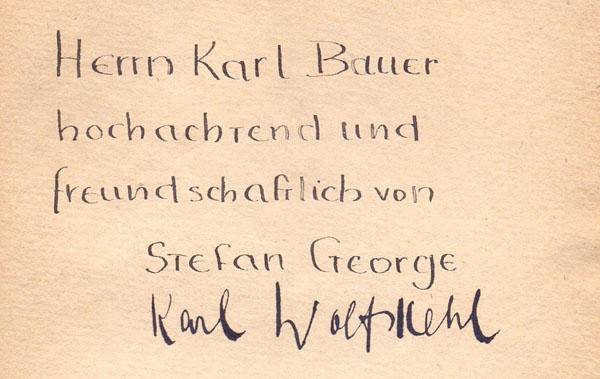 Herrn Karl Bauer
hochachtend und
freundschaftlich von
Stefan George
Karl Wolfskehl